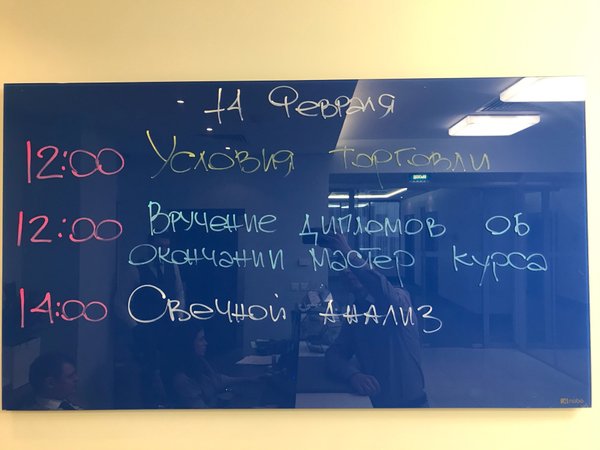 14 Февраля
12:00 Условия торговли
12:00 Вручение дипломов об
окончании мастер курса
14:00 Свечной анализ